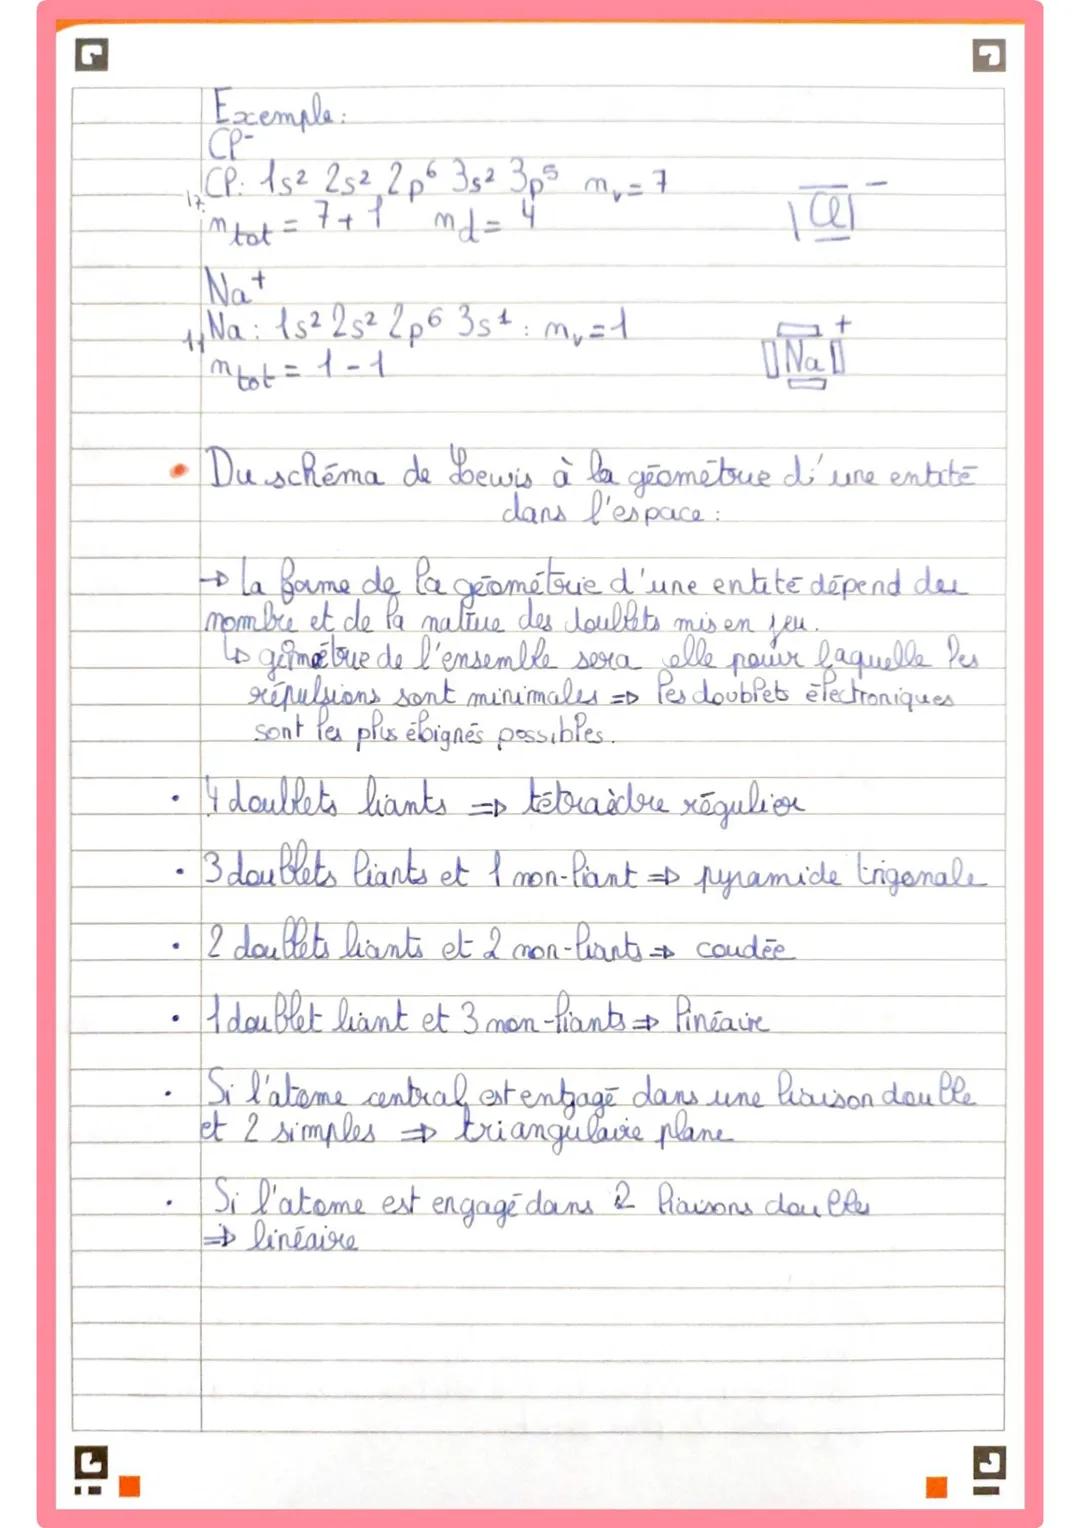 Exemple:
Cl⁻
₁₇Cl: 1s² 2s² 2p⁶ 3s² 3p⁵ nᵥ = 7
n tot = 7 + 1 nd = 4
|Cl| ⁻
Na⁺
₁₁Na: 1s² 2s² 2p⁶ 3s¹ : nᵥ = 1
n tot = 1 - 1
Na ⁺
• Du schéma de Lewis à la géométrie d'une entité
dans l'espace :
→ la forme de la géométrie d'une entité dépend du
nombre et de la nature des doublets mis en jeu.
↳ géométrie de l'ensemble sera celle pour laquelle les
répulsions sont minimales => les doublets électroniques
sont les plus éloignés possibles.
• 4 doublets liants => tétraèdre régulier
• 3 doublets liants et 1 non-liant => pyramide trigonale
• 2 doublets liants et 2 non-liants => coudée
• 1 doublet liant et 3 non-liants => linéaire
• Si l'atome central est engagé dans une liaison double
et 2 simples => triangulaire plane
• Si l'atome est engagé dans 2 liaisons doubles
=> linéaire